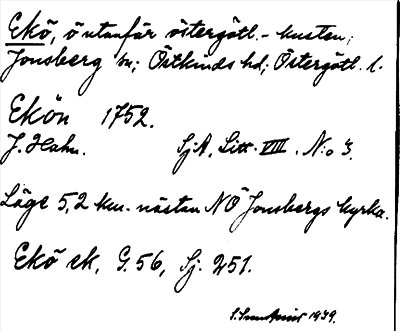 Ekö, ö utanför östergötl.- kusten;
Jonsberg sn; Östkinds hd; Östergötl. l.
Ekön 1752.
J. Hahn. SjA. Litt. VIII. N:o 3.
Läge 5,2 km. nästan NÖ Jonsbergs kyrka.
Ekö ek, G. 56, Sj. 251.
1939.